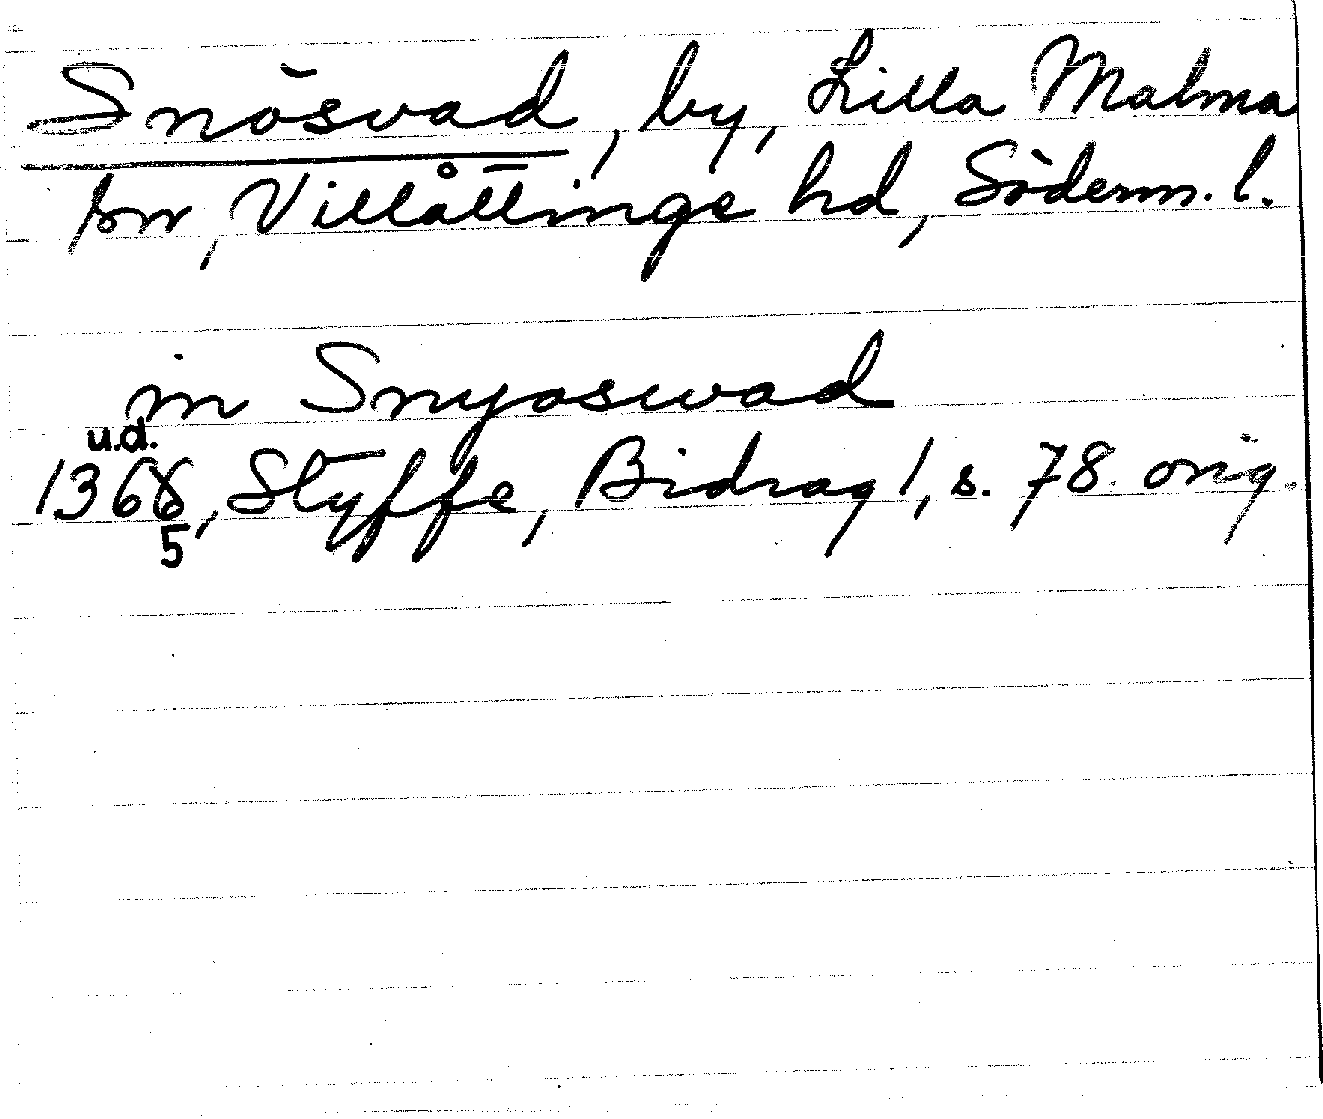 Snösvad, by, Lilla Malma
sn, Villåttinge hd, Söderm. l.
in Snyoswad
u.d.
1366, Styffe, Bidrag 1, s. 78. orig.
5